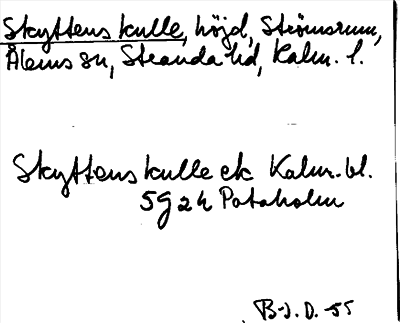 Skyttens kulle, höjd, Strömsrum,
Ålems sn, Stranda hd, Kalm. l.
Skyttens kulle ek Kalm. bl.
5g2h Pataholm
B-J. D. -55